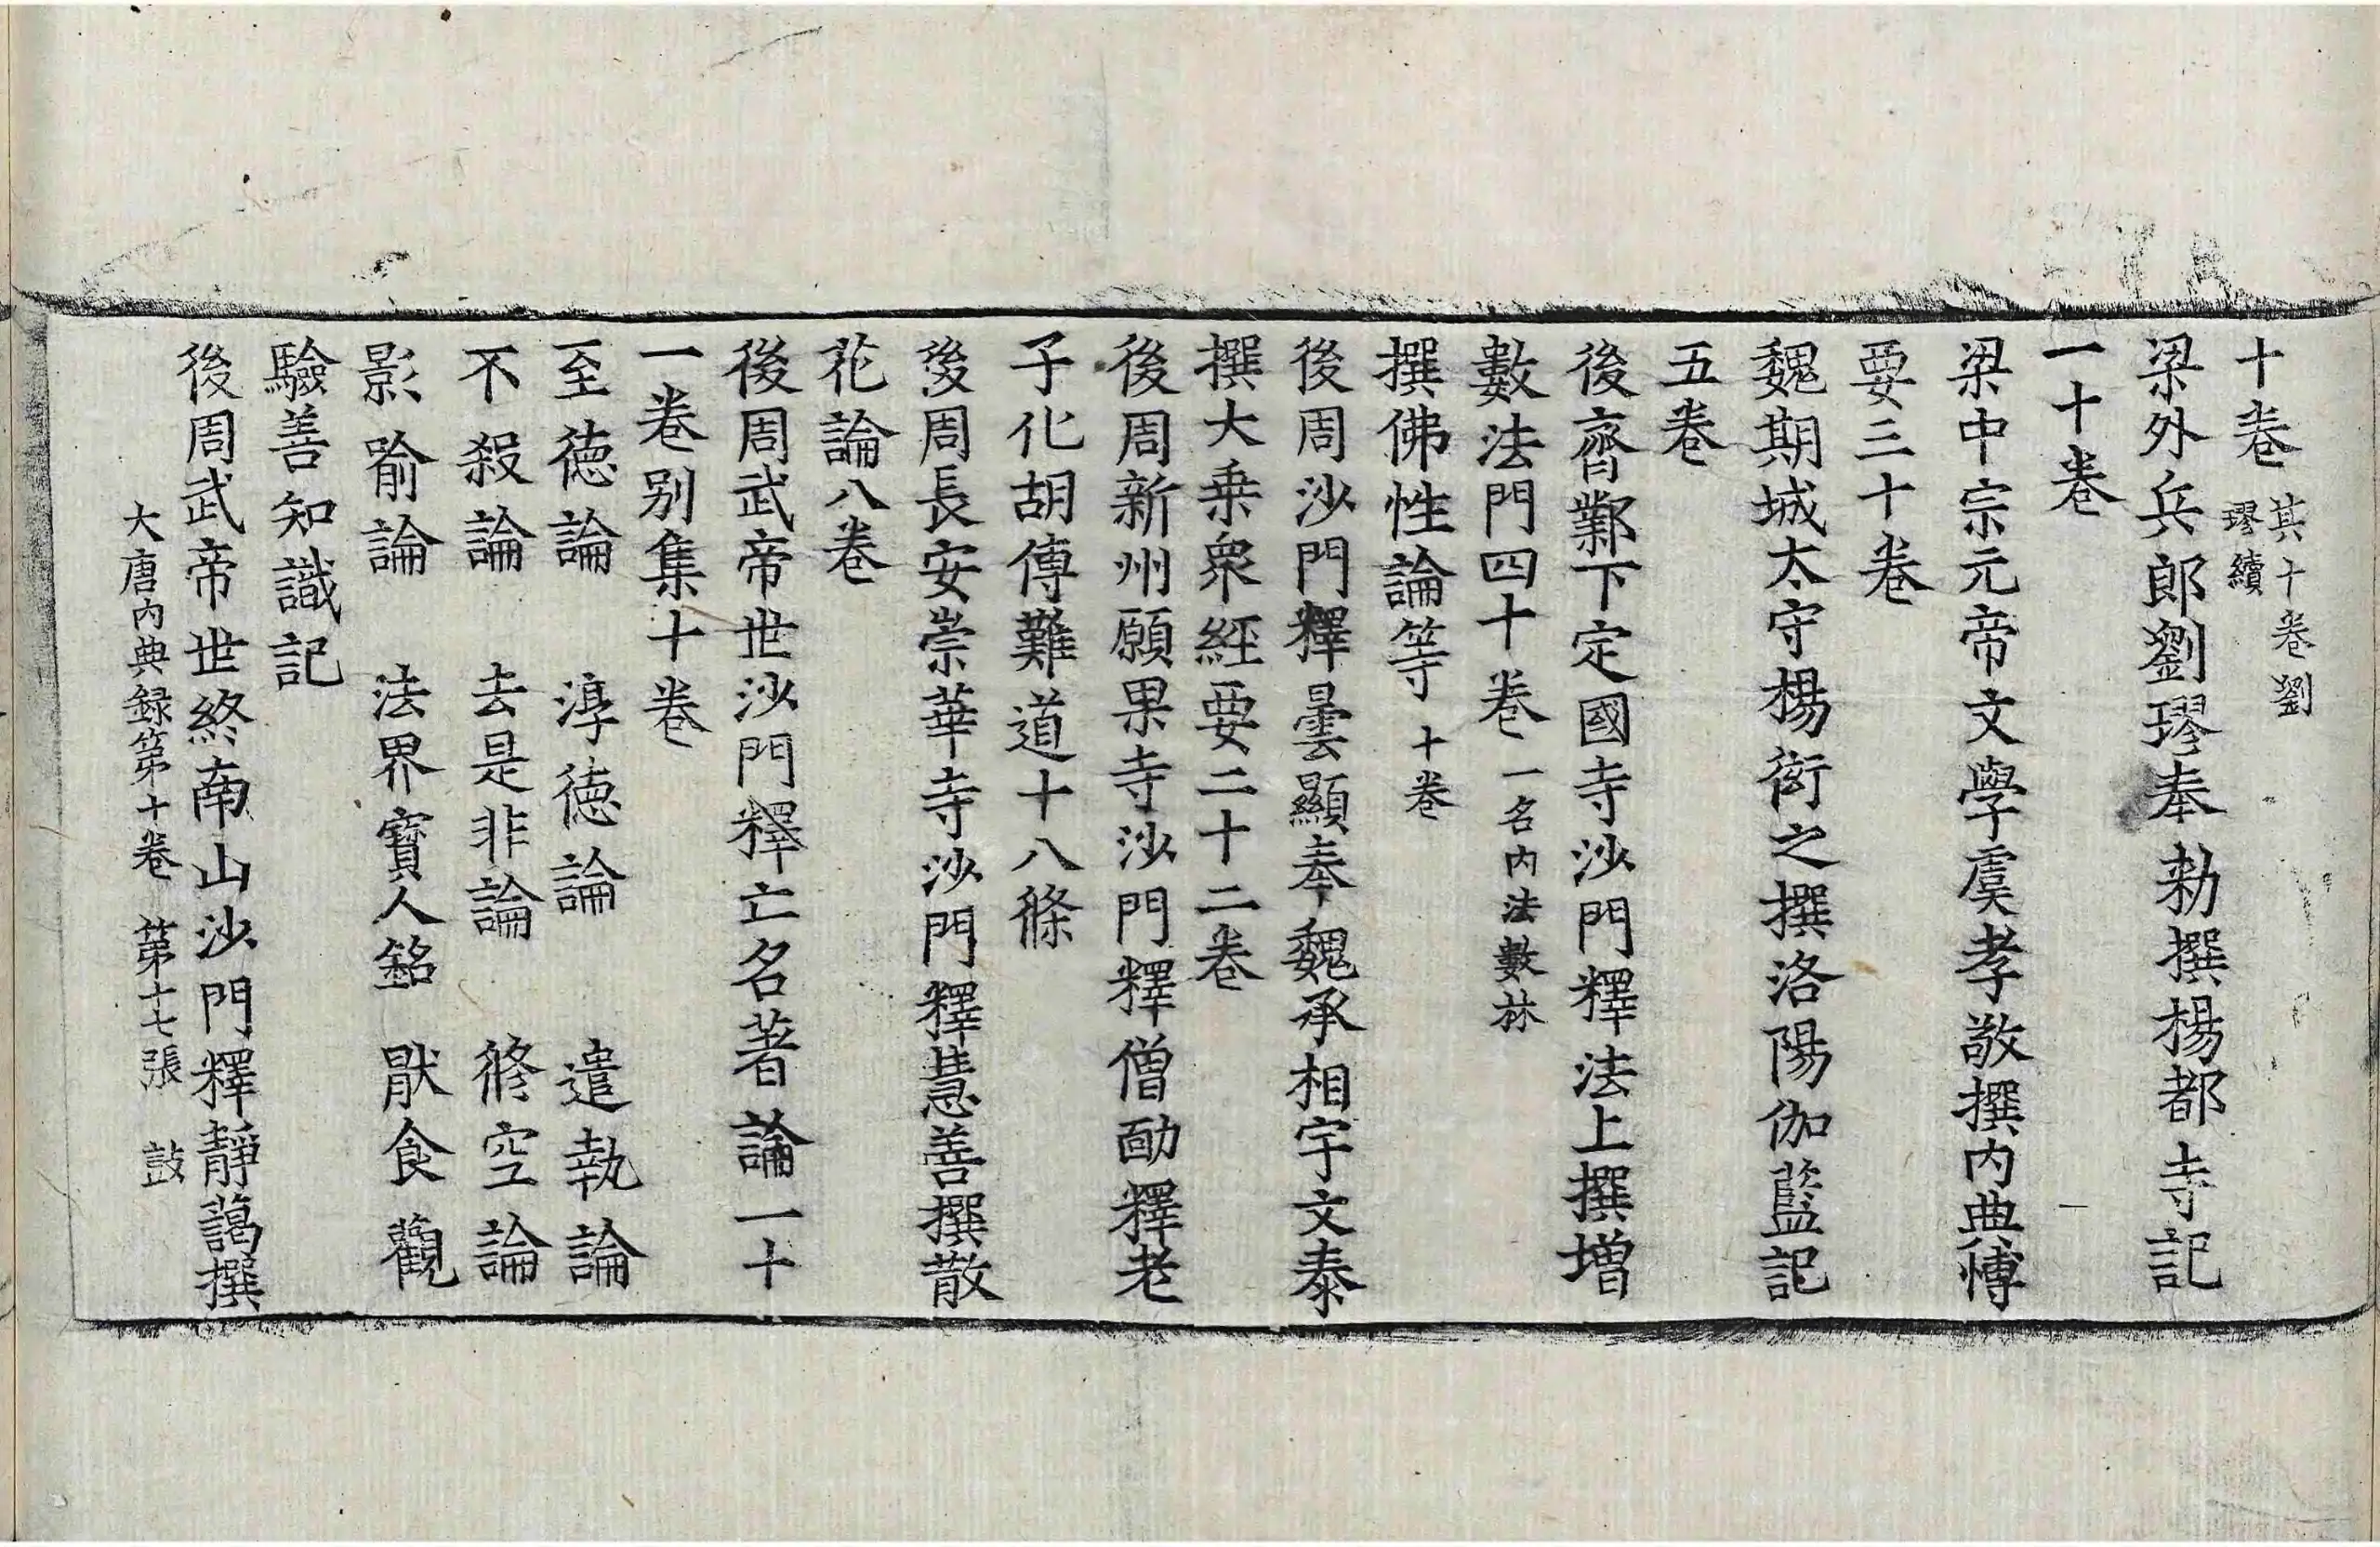 十卷其十卷劉璆續
梁外兵郎劉璆奉勑撰楊都寺記
一十卷
梁中宗元帝文學虞孝敬撰内典慱
要三十卷
魏期城太守楊衒之撰洛陽伽藍記
五卷
後齊鄴下定國寺沙門釋法上撰增
數法門四十卷一名内法數林
撰佛性論等十卷
後周沙門釋曇顯奉魏承相宇文泰
撰大乗衆經要二十二卷
後周新州願果寺沙門釋僧勔釋老
子化胡傳難道十八條
後周長安崇華寺沙門釋慧善撰散
花論八卷
後周武帝世沙門釋亡名著論一十
一卷别集十卷
至德論　淳德論　遣執論
不殺論　去是非論　修空論
影喻論　法界寶人銘　猒食觀
驗善知識記
後周武帝世終南山沙門釋靜藹撰
大唐内典録第十卷　第十七張　鼓